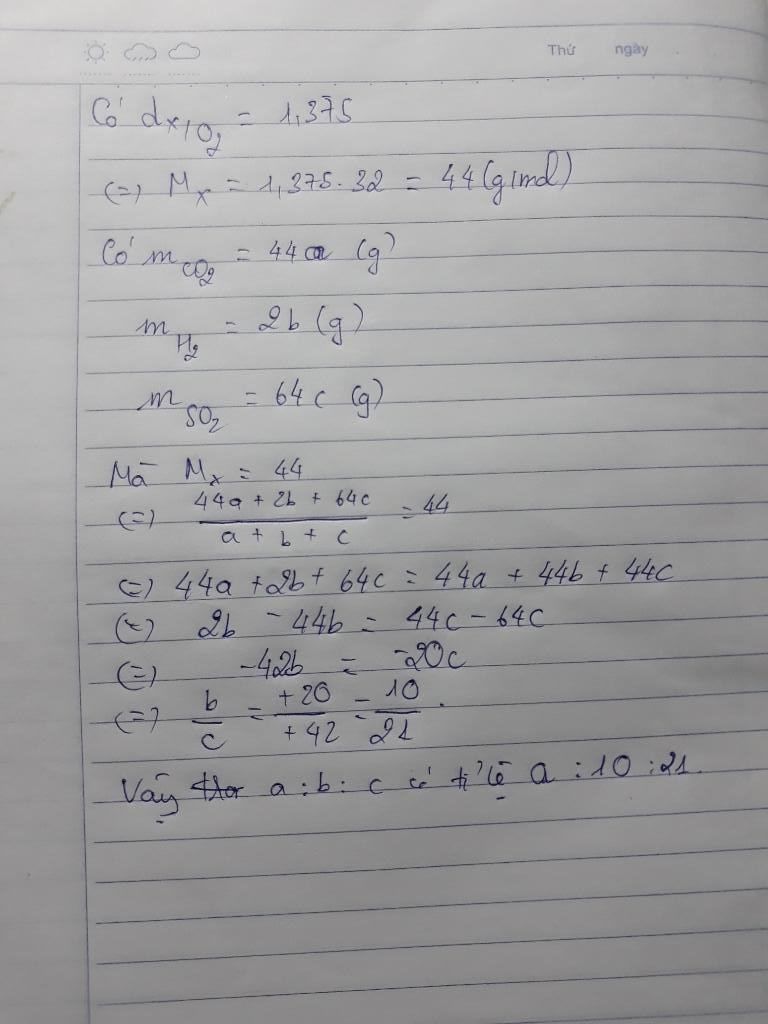 Thứ ngày
Có d_{X/O_2} = 1,375
(=) M_X = 1,375.32 = 44 (g/mol)
Có m_{CO_2} = 44a (g)
m_{H_2} = 2b (g)
m_{SO_2} = 64c (g)
Mà M_X = 44
(=) \frac{44a + 2b + 64c}{a + b + c} = 44
(=) 44a + 2b + 64c = 44a + 44b + 44c
(=) 2b - 44b = 44c - 64c
(=) -42b = -20c
(=) \frac{b}{c} = \frac{+20}{+42} = \frac{10}{21}.
Vậy a : b : c có tỉ lệ a : 10 : 21.